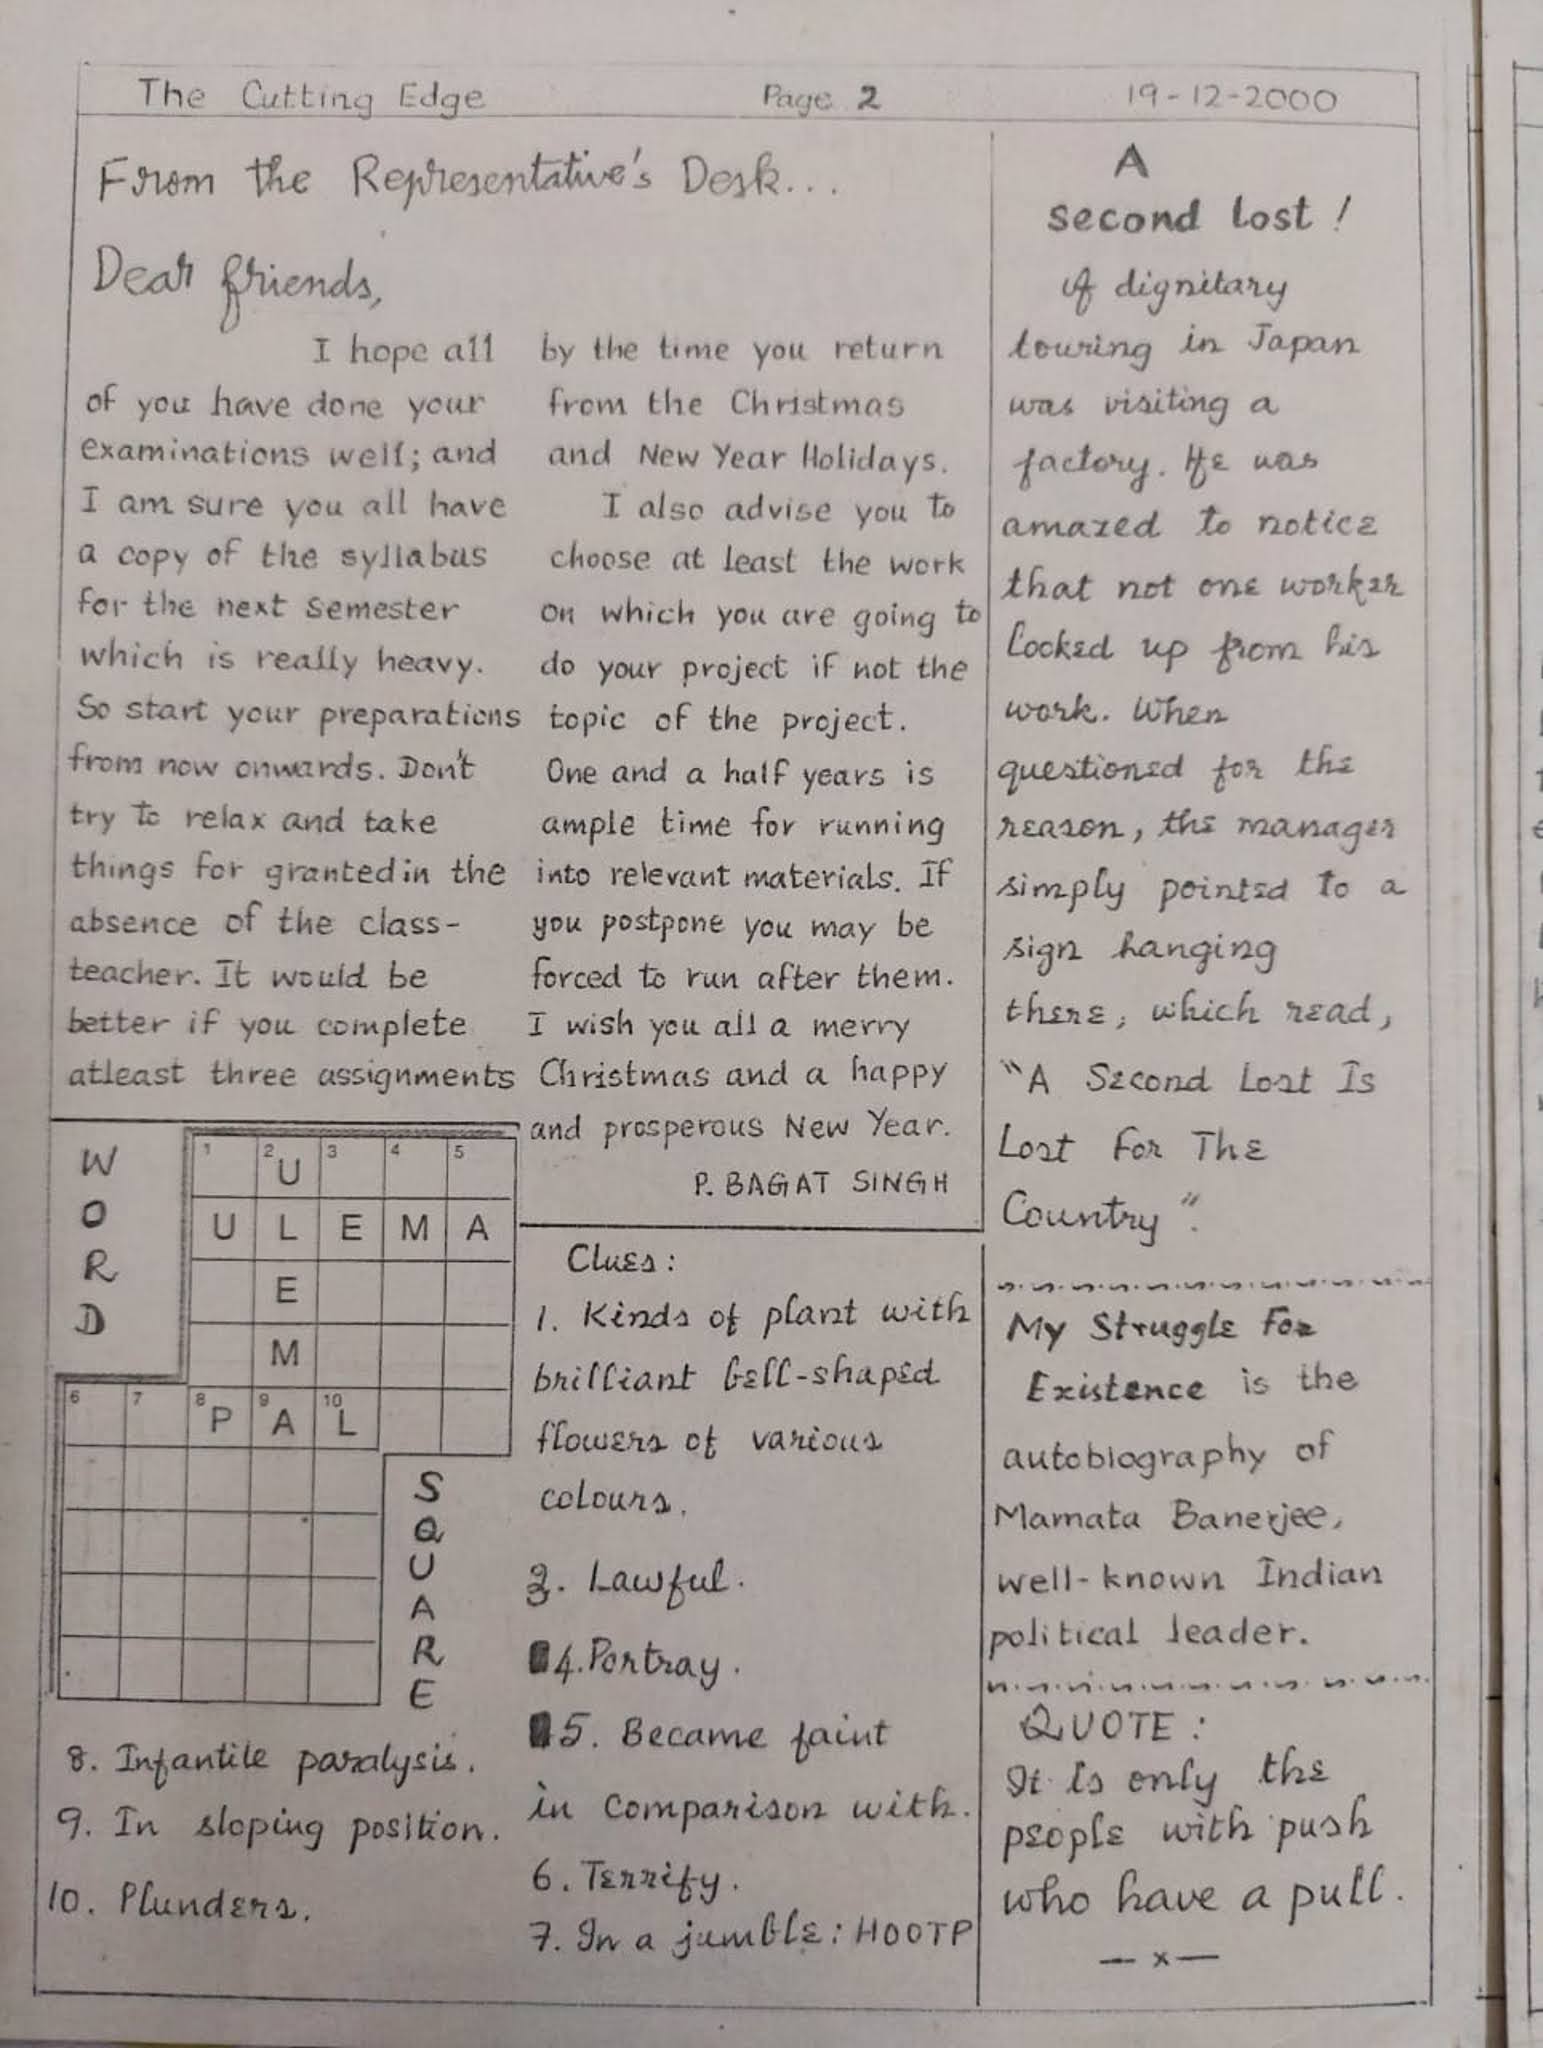 The Cutting Edge Page 2 19-12-2000
From the Representative's Desk...
Dear friends,
I hope all
of you have done your
examinations well; and
I am sure you all have
a copy of the syllabus
for the next semester
which is really heavy.
So start your preparations
from now onwards. Don't
try to relax and take
things for granted in the
absence of the class-
teacher. It would be
better if you complete
atleast three assignments
by the time you return
from the Christmas
and New Year Holidays.
I also advise you to
choose at least the work
on which you are going to
do your project if not the
topic of the project.
One and a half years is
ample time for running
into relevant materials. If
you postpone you may be
forced to run after them.
I wish you all a merry
Christmas and a happy
and prosperous New Year.
P. BAGAT SINGH
WORD
1 2 U 3 4 5
U L E M A
E
M
6 7 8 P 9 A 10 L
SQUARE
Clues:
1. Kinds of plant with
brilliant bell-shaped
flowers of various
colours.
3. Lawful.
4. Portray.
5. Became faint
in comparison with.
6. Terrify.
7. In a jumble: HOOTP
8. Infantile paralysis.
9. In sloping position.
10. Plunders.
A
second lost!
A dignitary
touring in Japan
was visiting a
factory. He was
amazed to notice
that not one worker
looked up from his
work. When
questioned for the
reason, the manager
simply pointed to a
sign hanging
there, which read,
"A Second Lost Is
Lost For The
Country".
My Struggle For
Existence is the
autobiography of
Mamata Banerjee,
well-known Indian
political leader.
QUOTE:
It is only the
people with push
who have a pull.
— x —